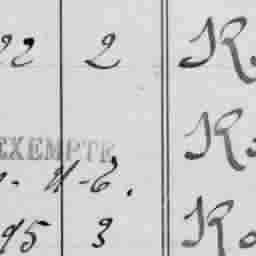 22 2 R.
R
EXEMPTE
- 11-6.
95 3 Ro